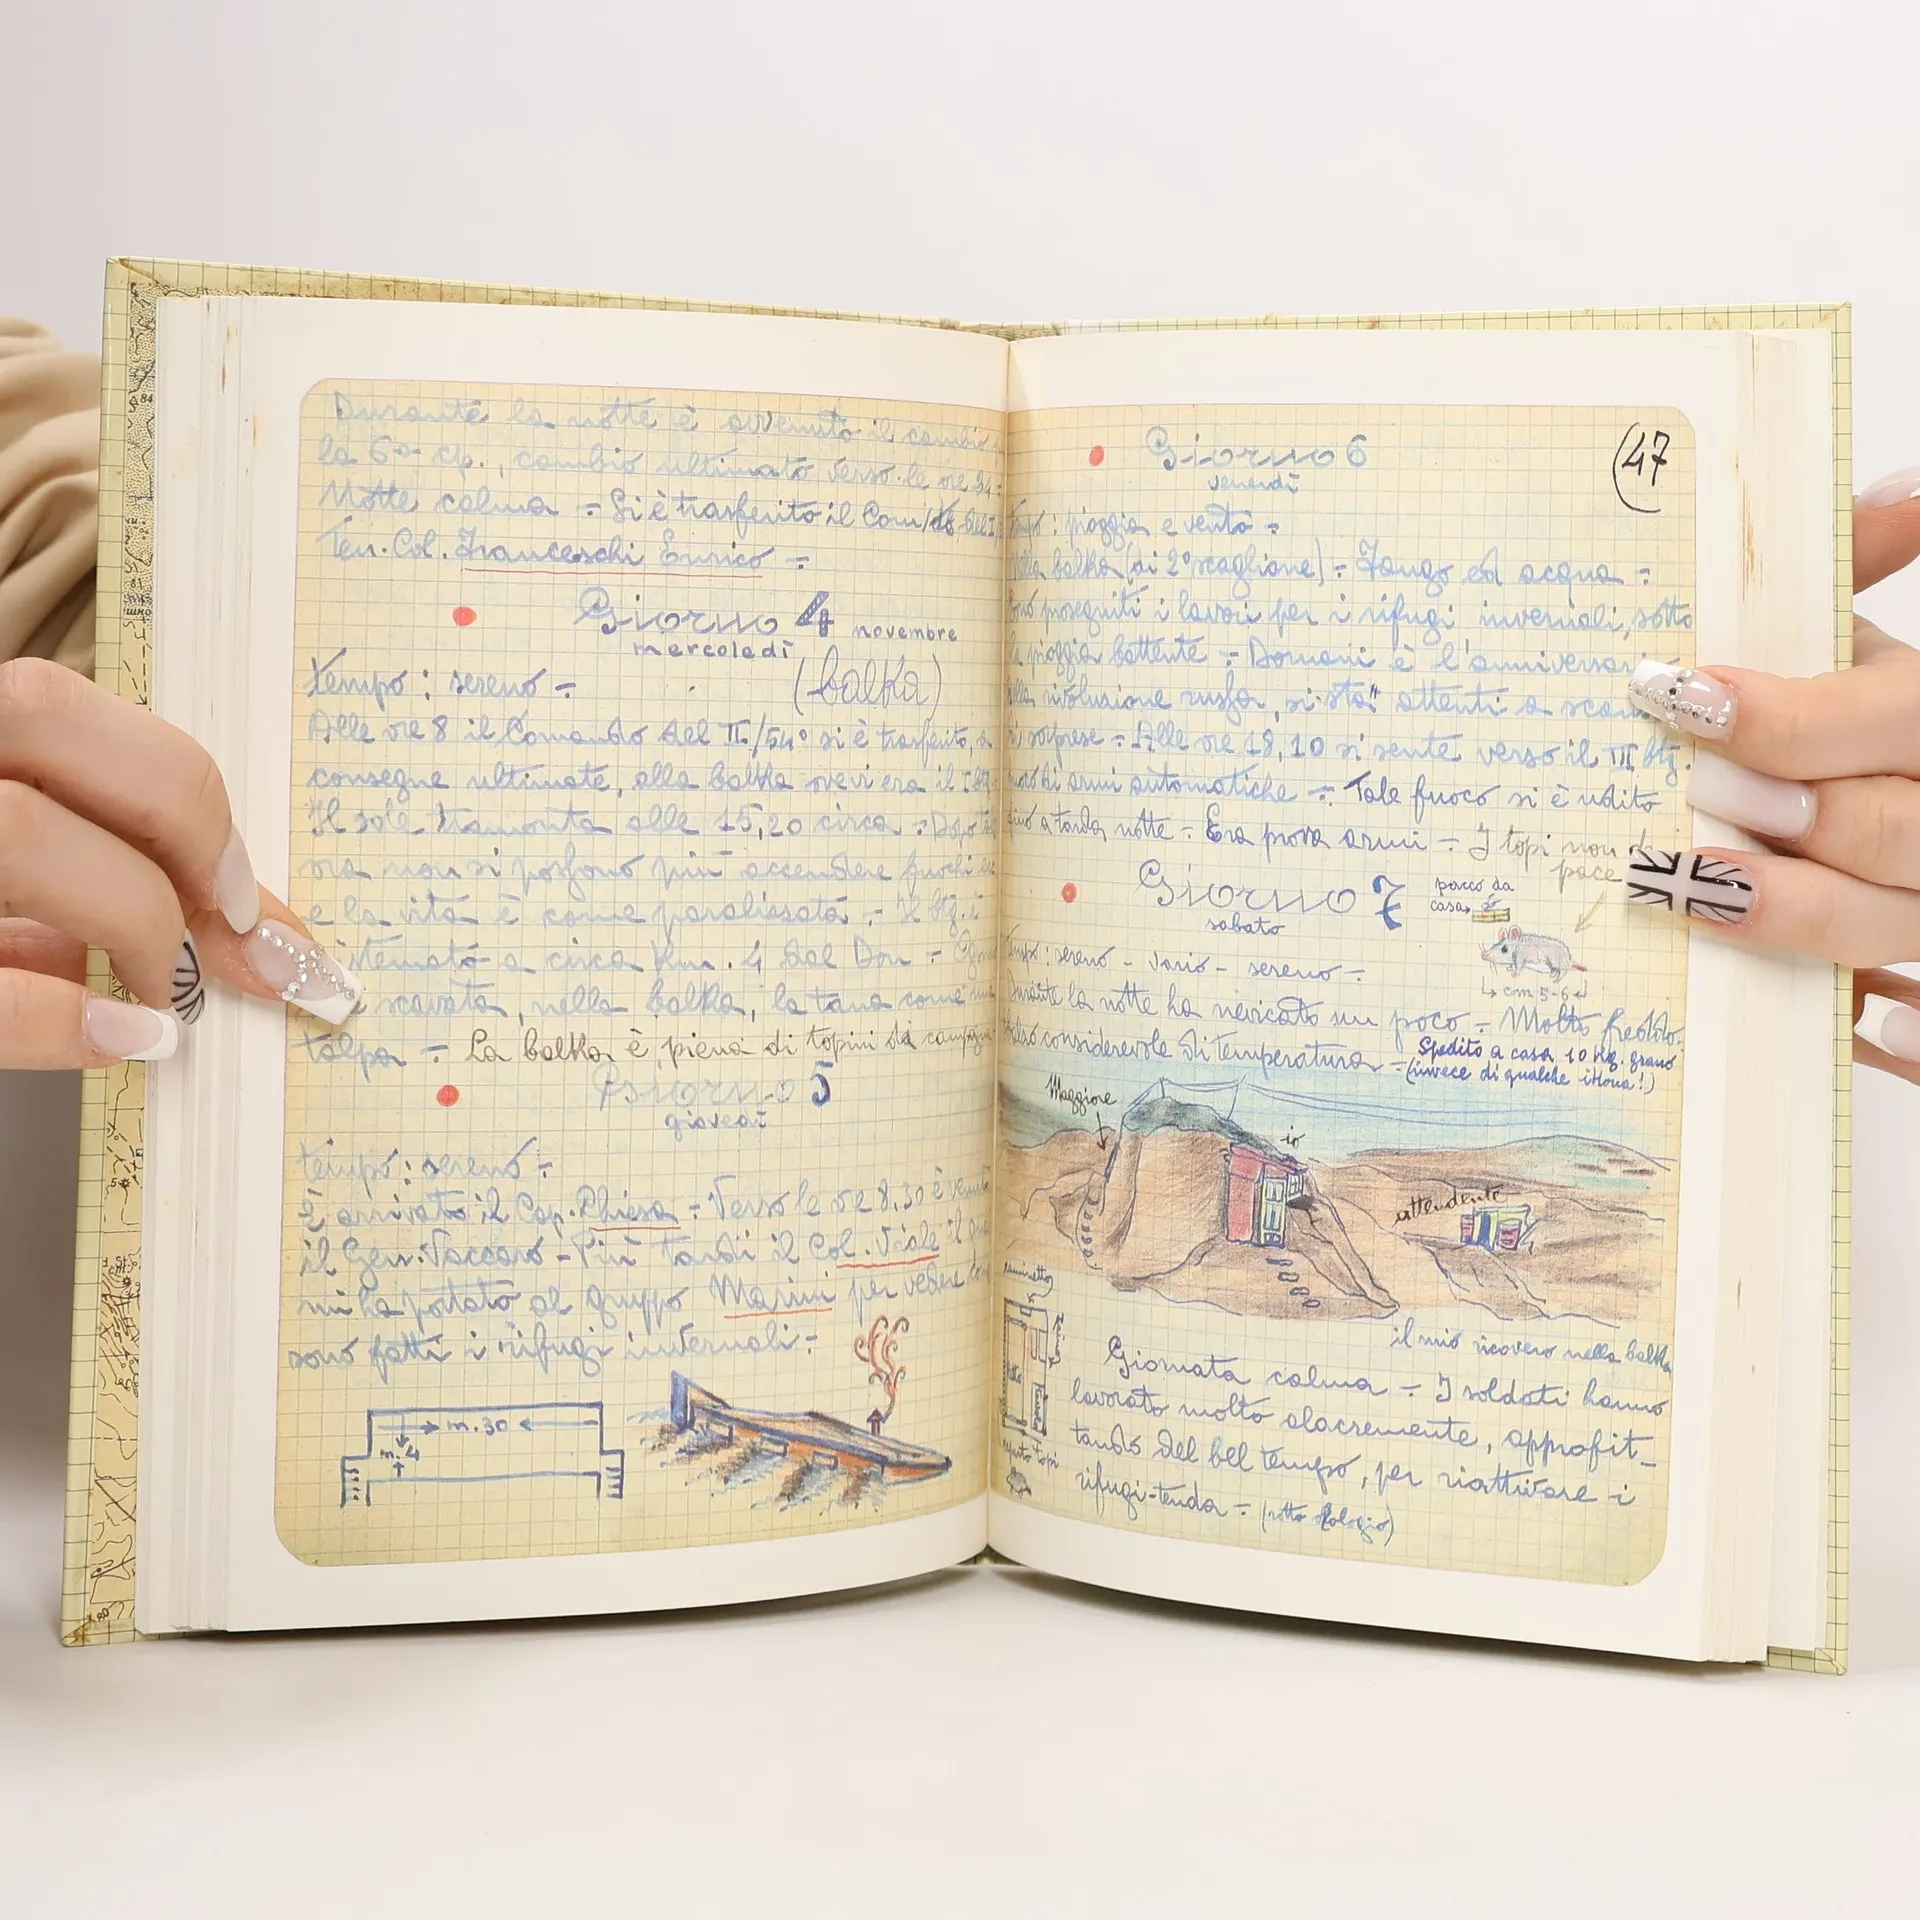 Durante la notte è avvenuto il cambio
la 6a cp., cambio ultimato verso le ore 24 =
Notte calma = Si è trasferito il Com/te del I
Ten. Col. Franceschi Enrico =
Giorno 4 novembre
mercoledì
tempo: sereno = (balka)
Alle ore 8 il Comando del II/54° si è trasferito, a
consegne ultimate, alla balka ove vi era il I btg.
Il sole tramonta alle 15,20 circa = Dopo
ora non si possono più accendere fuochi
e la vita è come paralizzata = Il btg. è
sistemato a circa Km. 4 dal Don =
scavata, nella balka, la tana come una
talpa = La balka è piena di topini di campagna
Giorno 5
giovedì
tempo: sereno =
È arrivato il Cap. Chiesa = Verso le ore 8,30 è venuto
il Gen. Vaccaro - Più tardi il Col. Viale il
mi ha portato al gruppo Marini per vedere
sono fatti i rifugi invernali =
m. 30
m. 4
Giorno 6
venerdì
(47
tempo: pioggia e vento =
Alla balka (di 2° scaglione) = Fango ed acqua =
Sono proseguiti i lavori per i rifugi invernali, sotto
la pioggia battente = Domani è l'anniversario
della rivoluzione russa, si sta attenti a scanso
di sorprese = Alle ore 18,10 si sente verso il III btg.
fuoco di armi automatiche = Tale fuoco si è udito
fino a tarda notte = Era prova armi = I topi non
pace
Giorno 7
sabato
pacco da
casa
tempo: sereno - vario - sereno =
cm 5-6
Durante la notte ha nevicato un poco = Molto freddo.
considerevole di temperatura =
Spedito a casa 10 Kg. grano
(invece di qualche icona!)
Maggiore
io
attendente
caminetto
topi
il mio ricovero nella balka
Giornata calma = I soldati hanno
lavorato molto alacremente, approfit-
tando del bel tempo, per riattivare i
rifugi-tenda = (rotto orologio)